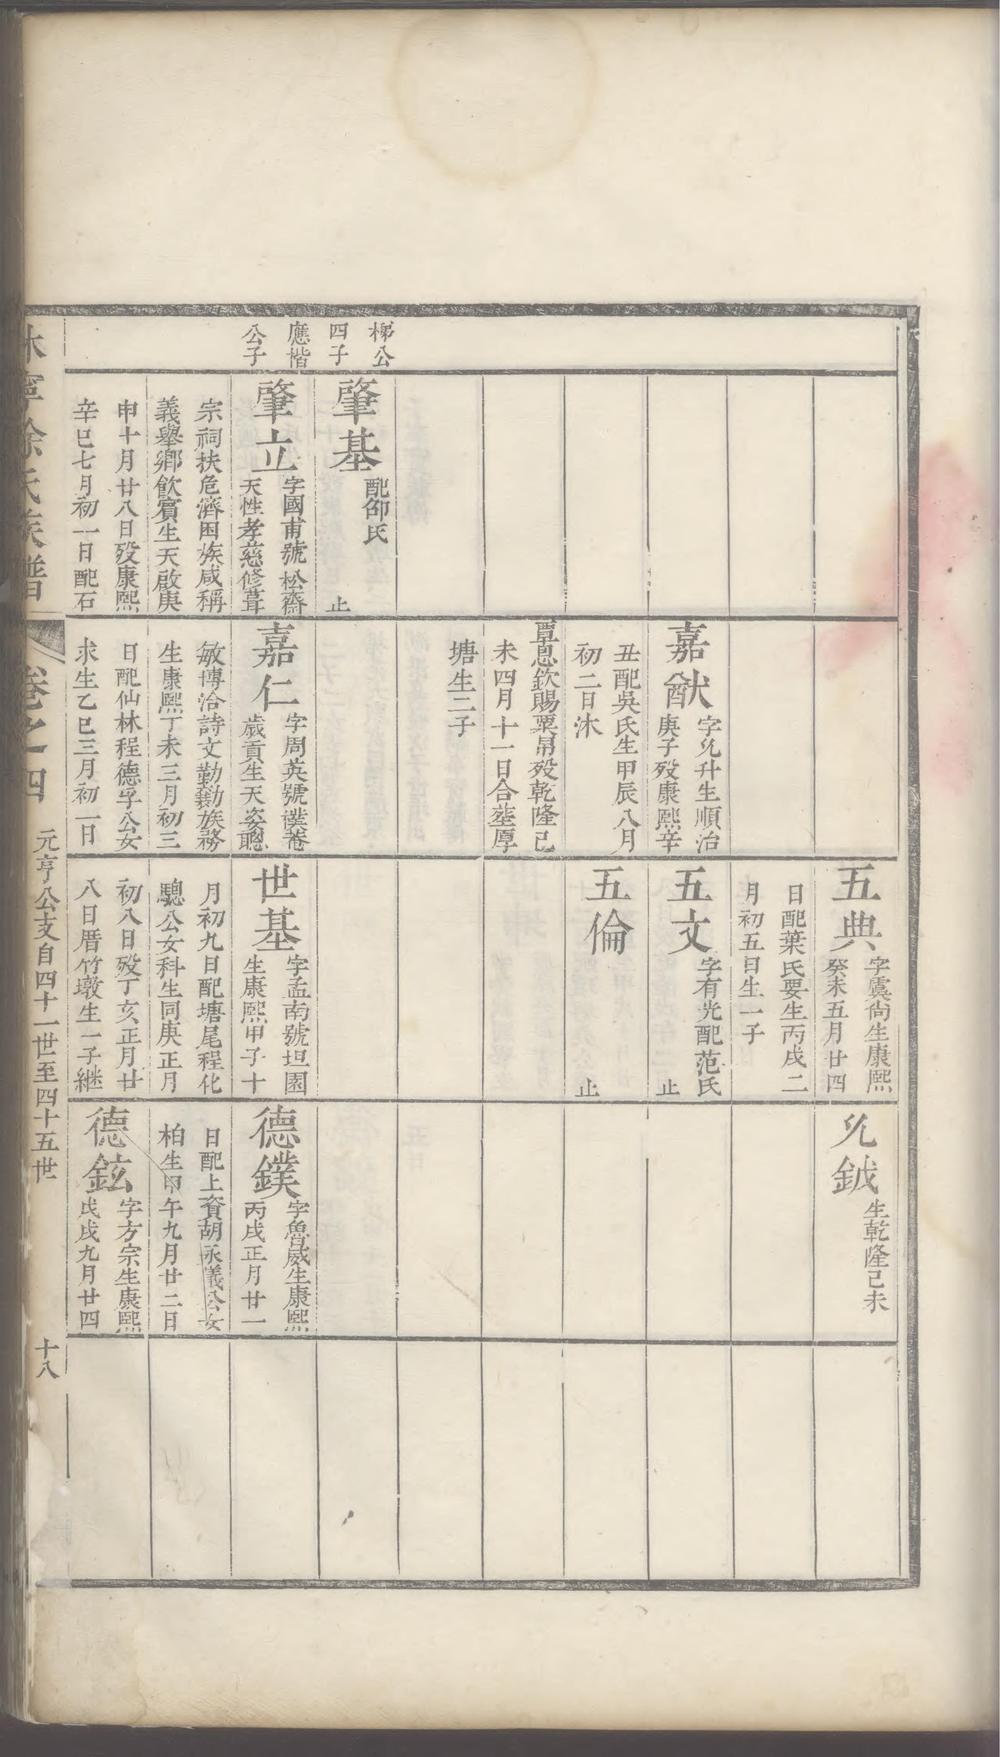 梯公
四子
應楷
公子
肇基
配邵氏
止
肇立
字國甫號松齋
天性孝慈修葺
宗祠扶危濟困族咸稱
義舉鄉飲賓生天啟庚
申十月廿八日歿康熙
辛巳七月初一日配石
嘉猷
字允升生順治
庚子歿康熙辛
丑配吳氏生甲辰八月
初二日沐
覃恩欽賜粟帛歿乾隆己
未四月十一日合塟厚
塘生二子
嘉仁
字周英號蘀菴
歲貢生天姿聰
敏博洽詩文勤勷族務
生康熙丁未三月初三
日配仙林程德孚公女
求生乙巳三月初一日
五典
字虞尚生康熙
癸未五月廿四
日配葉氏要生丙戌二
月初五日生一子
五文
字有光配范氏
止
五倫
止
世基
字孟南號坦園
生康熙甲子十
月初九日配塘尾程化
驄公女科生同庚正月
初八日歿丁亥正月廿
八日厝竹墩生一子継
允鉞
生乾隆己未
德鏷
字魯威生康熙
丙戌正月廿一
日配上資胡永議公女
柏生甲午九月廿二日
德鉉
字方宗生康熙
戊戌九月廿四
休寧徐氏族譜
卷之四
元亨公支自四十一世至四十五世
十八